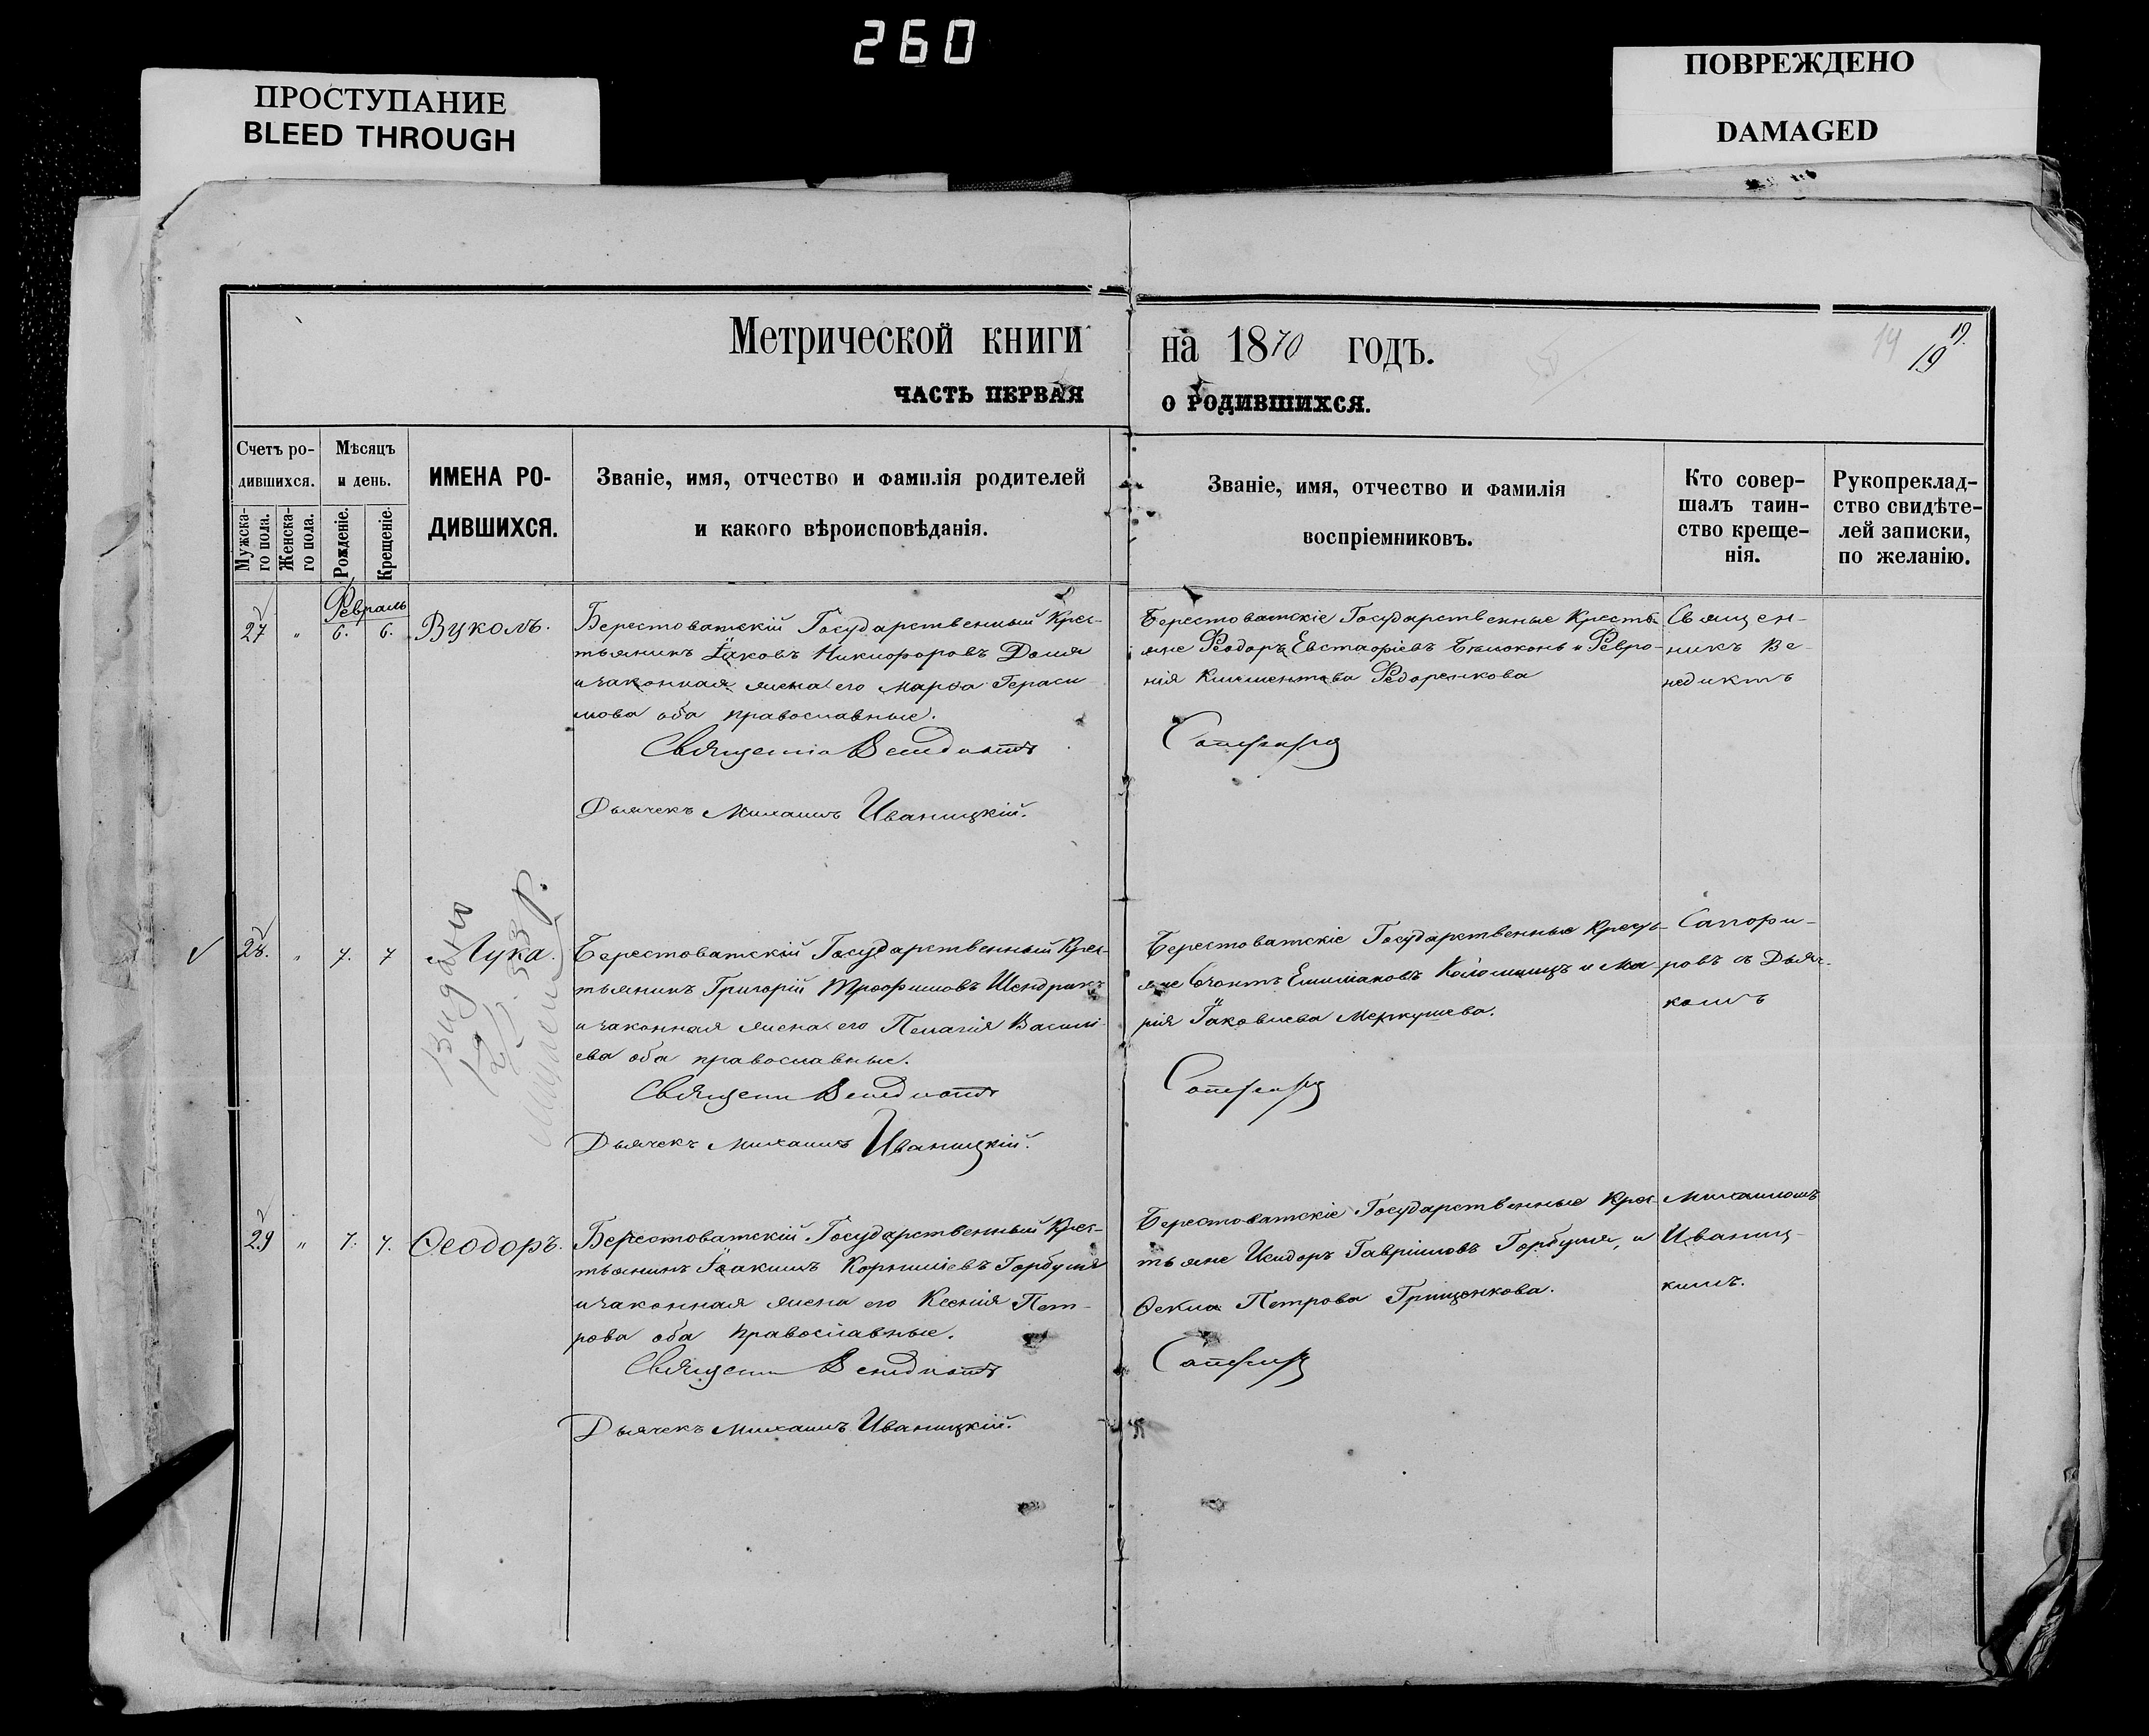 260
ПРОСТУПАНИЕ
BLEED THROUGH
ПОВРЕЖДЕНО
DAMAGED
Метрической книги на 1870 годъ.
19
19.
14
ЧАСТЬ ПЕРВАЯ О РОДИВШИХСЯ.
Счетъ ро-
дившихся.
Мужска-
го пола.
Женска-
го пола.
Мѣсяцъ
и день.
Рожденіе.
Крещеніе.
ИМЕНА РО-
ДИВШИХСЯ.
Званіе, имя, отчество и фамилія родителей
и какого вѣроисповѣданія.
Званіе, имя, отчество и фамилія
воспріемниковъ.
Кто совер-
шалъ таин-
ство креще-
нія.
Рукопреклад-
ство свидѣте-
лей записки,
по желанію.
Февраль
27 " 6. 6. Вуколъ.
Берестоватскій Государственный Крес-
тьянинъ Іаковъ Никифоровъ Доля
и законная жена его Марѳа Гераси-
мова оба православные.
Священ Венедиктъ
Дьячекъ Михаилъ Иваницкій.
Берестоватскіе Государственные Кресть-
яне Феодоръ Евстафіевъ Бѣлоконь и Февро-
нія Климентова Федоренкова
Сапфировъ
Священ-
никъ Ве-
недиктъ
28. " 7. 7 Лука.
Видано
12/I. 33 р.
Берестоватскій Государственный Крес-
тьянинъ Григорій Трофимовъ Шендрикъ
и законная жена его Пелагія Василі-
ева оба православные.
Священ Венедиктъ
Дьячекъ Михаилъ Иваницкій.
Берестоватскіе Государственные Кресть-
яне Емиліановъ Коломіицъ и Ма-
рія Іаковлева Меркушева.
Сапфировъ
Сапфи-
ровъ съ Дьяч-
комъ
29 " 7. 7. Ѳеодоръ.
Берестоватскій Государственный Крес-
тьянинъ Іоакимъ Корниліевъ Горбуля
и законная жена его Ксенія Пет-
рова оба православные.
Священ Венедиктъ
Дьячекъ Михаилъ Иваницкій.
Берестоватскіе Государственные Крес-
тьяне Исидоръ Гавріиловъ Горбуля, и
Ѳекла Петрова Грищенкова.
Сапфировъ
Михаиломъ
Иваниц-
кимъ.